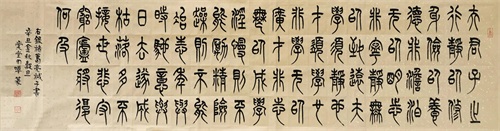 夫君子之
行靜以修
身儉以養
德非澹泊
無以明志
非寧靜無
以致遠夫
學須靜也
才須學也
非學無以
廣才非志
無以成學
淫慢則不
能勵精險
躁則不能
冶性年與
時馳意與
日去遂成
枯落多不
接世悲守
窮廬將復
何及
右錄諸葛亮誡子書